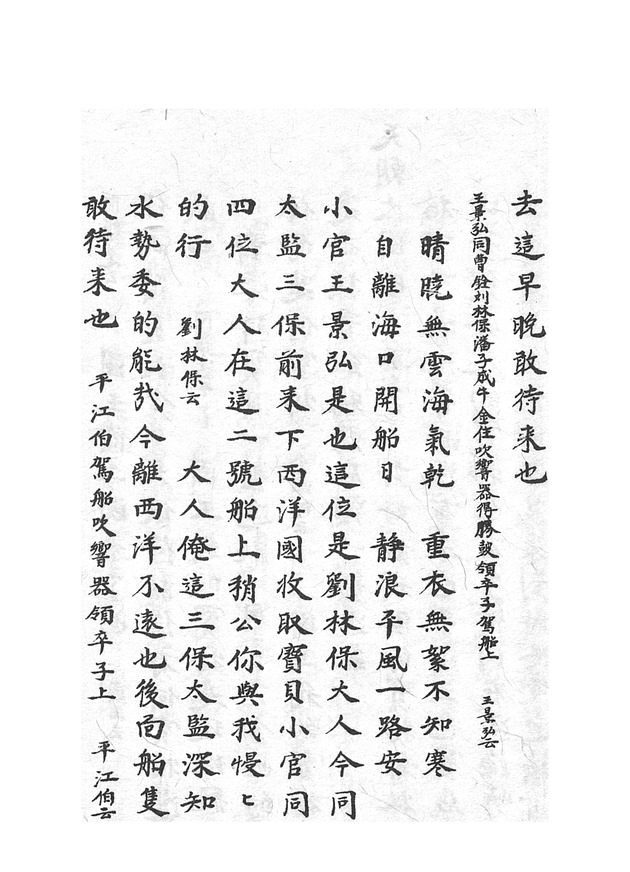 去這早晚敢待来也
王景弘同曹銓刘林保潘子成牛金住吹響器得勝鼓領卒子駕船上 王景弘云
晴曉無雲海氣乾 重衣無絮不知寒
自離海口開船日 静浪平風一路安
小官王景弘是也這位是劉林保大人今同
太監三保前来下西洋國收取寳貝小官同
四位大人在這二號船上稍公你與我慢ヒ
的行 劉林保云 大人俺這三保太監深知
水勢委的能哉今離西洋不遠也後面船隻
敢待来也 平江伯駕船吹響器領卒子上 平江伯云